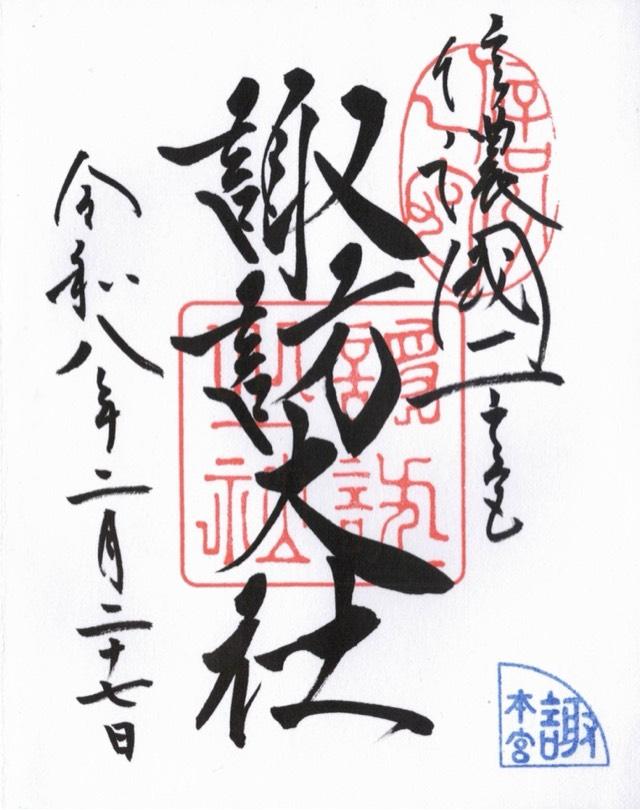 信濃國一之宮
諏訪大社
令和八年二月二十七日
諏
本宮